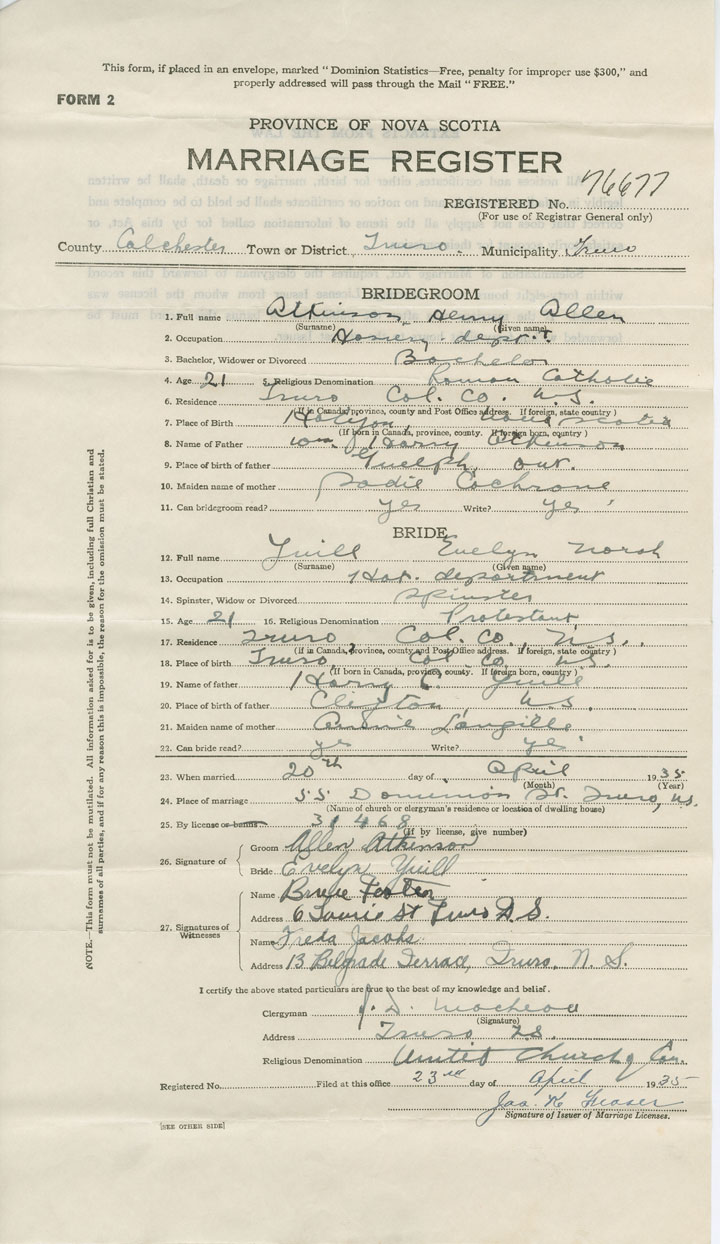 This form, if placed in an envelope, marked "Dominion Statistics—Free, penalty for improper use $300," and
properly addressed will pass through the Mail "FREE."
FORM 2
PROVINCE OF NOVA SCOTIA
MARRIAGE REGISTER
REGISTERED No. 76677
(For use of Registrar General only)
County Colchester Town or District Truro. Municipality Truro
BRIDEGROOM
1. Full name Atkinson, Henry Allen
(Surname) (Given name)
2. Occupation Hosiery dep't
3. Bachelor, Widower or Divorced Bachelor
4. Age 21 5. Religious Denomination Roman Catholic
6. Residence Truro Col. Co. N.S.
(If in Canada, province, county and Post Office address. If foreign, state country)
7. Place of Birth Nova Scotia
(If born in Canada, province, county. If foreign born, country)
8. Name of Father Wm Harry Atkinson
9. Place of birth of father Guelph, Ont.
10. Maiden name of mother Sadie Cochrane
11. Can bridegroom read? yes Write? yes
BRIDE
12. Full name Yuill Evelyn Norah
(Surname) (Given name)
13. Occupation Hos. department
14. Spinster, Widow or Divorced Spinster
15. Age 21 16. Religious Denomination Protestant
17. Residence Truro, Col. Co., N.S.
(If in Canada, province, county and Post Office address. If foreign, state country)
18. Place of birth Truro, Col. Co. N.S.
(If born in Canada, province, county. If foreign born, country)
19. Name of father Harry C. Yuill
20. Place of birth of father Clifton, N.S.
21. Maiden name of mother Annie Langille
22. Can bride read? yes Write? yes
23. When married 20th day of April 1935
(Month) (Year)
24. Place of marriage 55 Dominion St. Truro, N.S.
(Name of church or clergyman's residence or location of dwelling house)
25. By license or banns 31468
(If by license, give number)
26. Signature of
Groom Allen Atkinson
Bride Evelyn Yuill
27. Signatures of Witnesses
Name Bruce Foster
Address 6 Laurie St Truro N.S.
Name Freda Jacobs
Address 13 Belgrade Terrace, Truro, N.S.
I certify the above stated particulars are true to the best of my knowledge and belief.
Clergyman J. D. MacLeod
(Signature)
Address Truro N.S.
Religious Denomination United Church of Can.
Registered No. Filed at this office 23rd day of April 1935
Jas. K. Fraser
Signature of Issuer of Marriage Licenses.
[SEE OTHER SIDE]
NOTE.—This form must not be mutilated. All information asked for is to be given, including full Christian and
surnames of all parties, and if for any reason this is impossible, the reason for the omission must be stated.